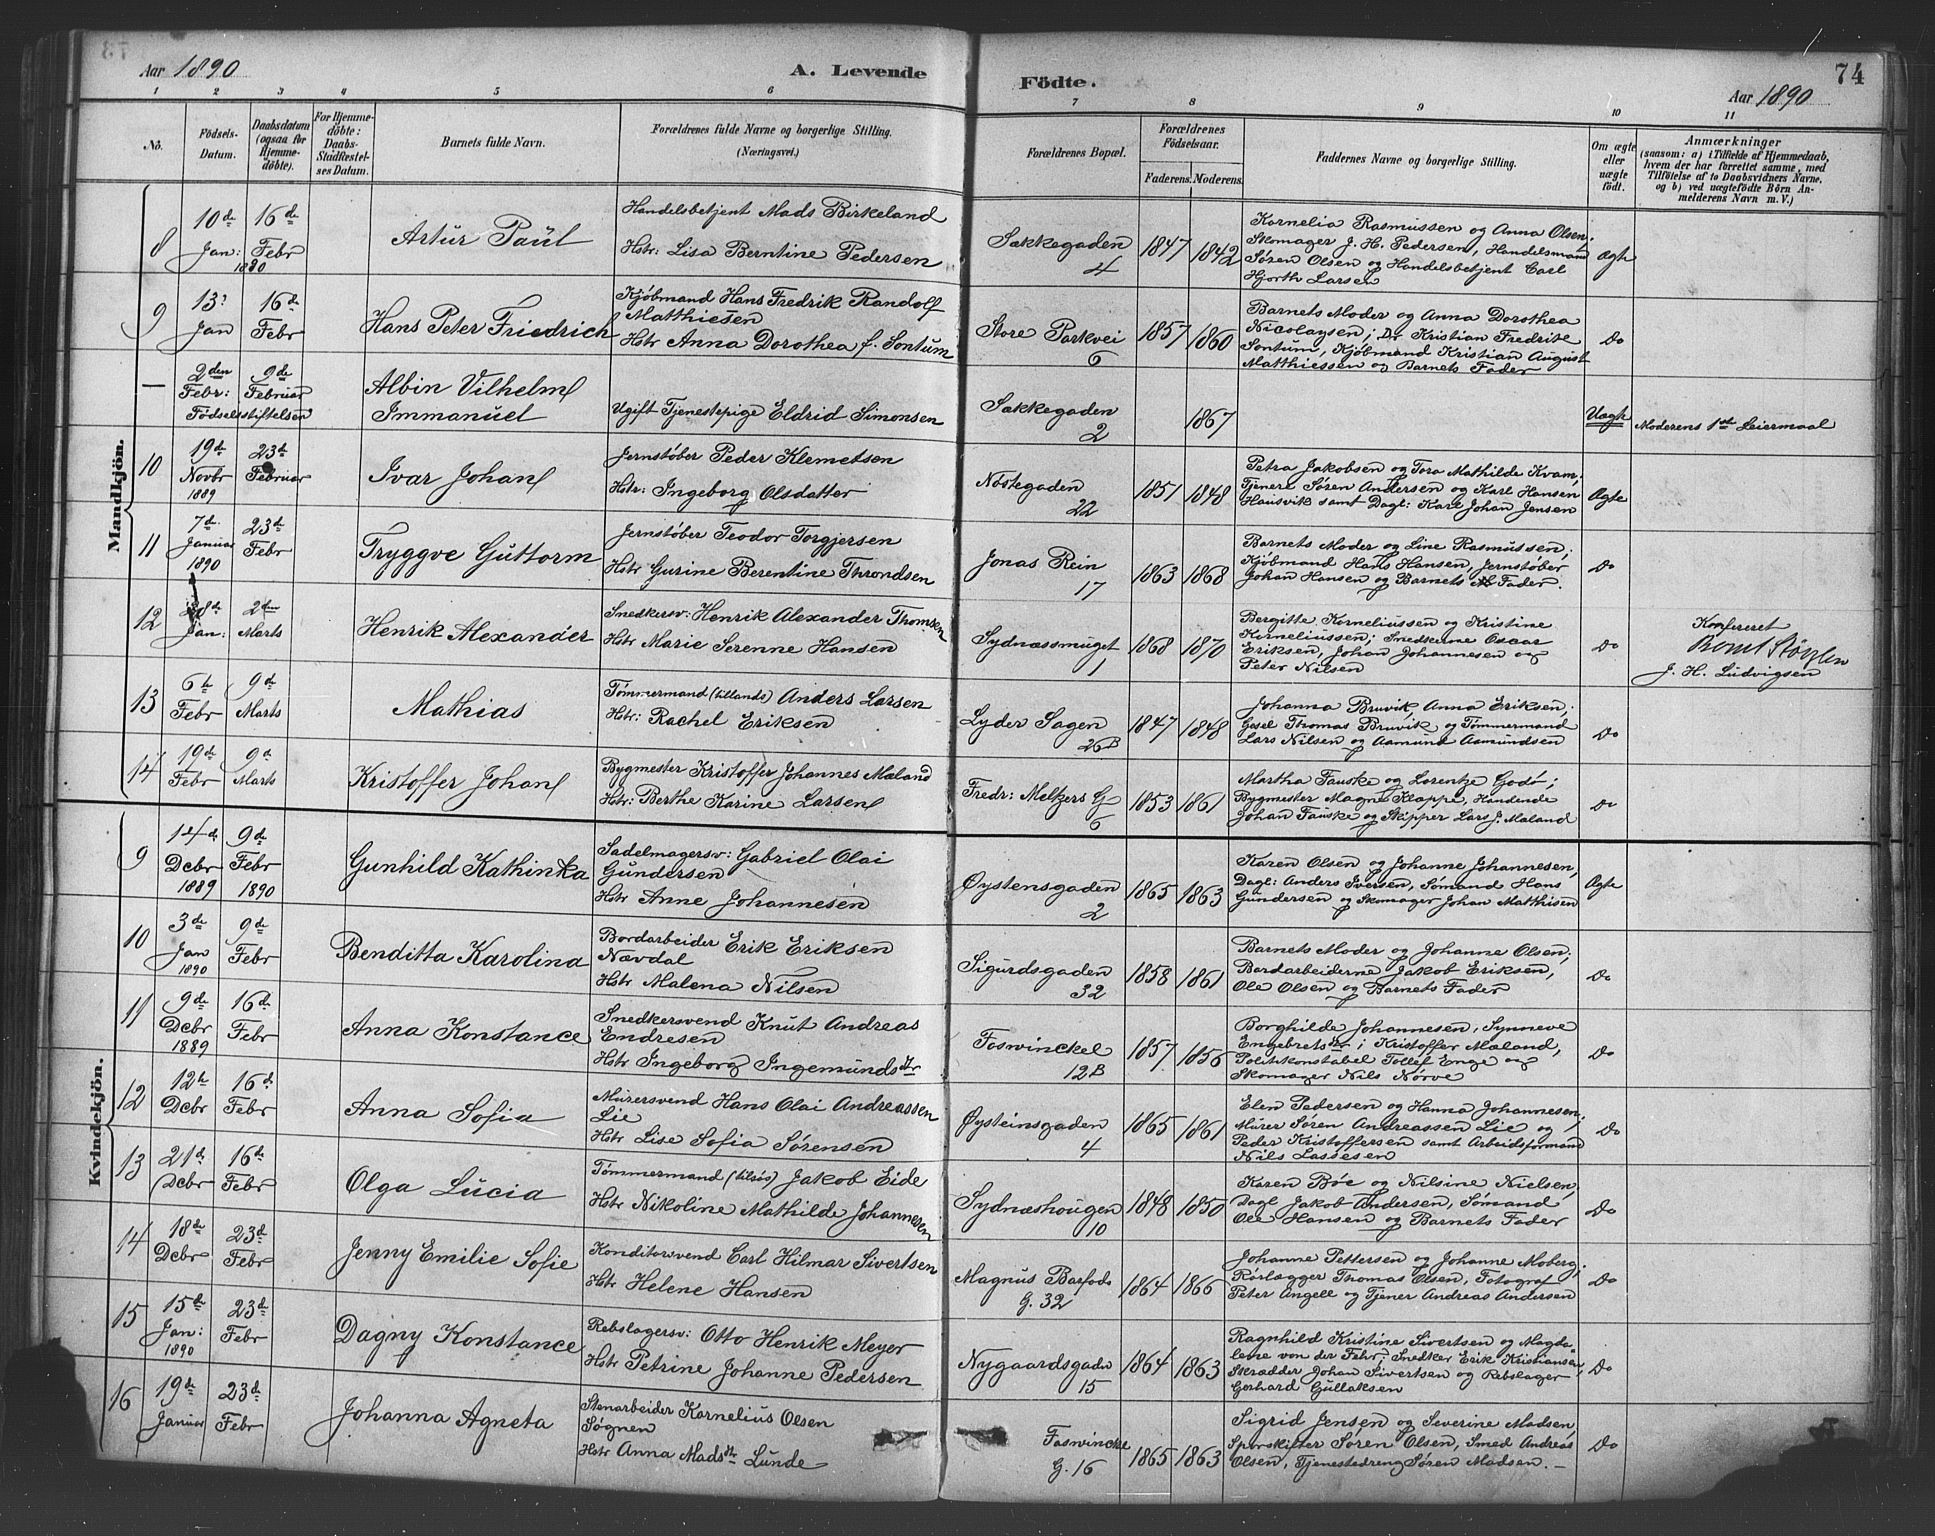 74
Aar 1890
A. Levende Födte.
Aar 1890
1 2 3 4 5 6 7 8 9 10 11
No.
Födsels-
Datum.
Daabsdatum
(ogsaa for
Hjemme-
döbte).
For Hjemme-
döbte:
Daabs-
Stadfæstel-
ses Datum.
Barnets fulde Navn.
Forældrenes fulde Navne og borgerlige Stilling.
(Næringsvei.)
Forældrenes Bopæl.
Forældrenes
Födselsaar.
Faderens. Moderens.
Faddernes Navne og borgerlige Stilling.
Om ægte
eller
uægte
födt.
Anmærkninger
(saasom: a) i Tilfælde af Hjemmedaab,
hvem der har forrettet samme, med
Tilföielse af to Daabsvidners Navne,
og b) ved uægtefödte Börn An-
melderens Navn m. V.)
Mandkjön.
8
10de
Jan:
1890
16de
Febr
Artur Paul
Handelsbetjent Mads Birkeland
Hstr: Lisa Berntine Pedersen
Sækkegaden
4
1847 1842
Kornelia Rasmussen og Anna Olsen;
Skomager J. H. Pedersen, Handelsmand
Søren Olsen og Handelsbetjent Carl
Hjorth Larsen
Ægte
9
13
Jan
16de
Febr
Hans Peter Friedrich
Kjøbmand Hans Fredrik Randolf
Matthiesen
Hstr Anna Dorothea f. Sontum
Store Parkvei
6
1857 1860
Barnets Moder og Anna Dorothea
Nicolaysen; Dr Kristian Fredrik
Sontum, Kjøbmand Kristian August
Matthiessen og Barnets Fader
Do
—
2den
Febr:
Fødselsstiftelsen
9de
Februar
Albin Vilhelm
Immanuel
Ugift Tjenestepige Eldrid Simonsen
Sækkegaden
2
1867
Uægte
Moderens 1ste Leiermaal
10
19de
Novbr
1889
23de
Februar
Ivar Johan
Jernstøber Peder Klemetsen
Hstr: Ingeborg Olsdatter
Nøstegaden
22
1851 1848
Petra Jakobsen og Tora Mathilde Kvam;
Tjenere Søren Andersen og Karl Hansen
Hausvik samt Dagl: Karl Johan Jensen
Ægte
11
7de
Januar
1890
23de
Febr
Tryggve Guttorm
Jernstøber Teodor Torgjersen
Hstr Gurine Berentine Throndsen
Jonas Rein
17
1863 1868
Barnets Moder og Line Rasmussen;
Kjøbmand Hans Hansen, Jernstøber
Johan Hansen og Barnets Fader.
Do
12
28de
Jan:
2den
Marts
Henrik Alexander
Snedkersv: Henrik Alexander Thomsen
Hstr Marie Serenne Hansen
Sydnæssmuget
1
1868 1870
Bergitte Korneliussen og Kristine
Korneliussen; Snedkerne Oscar
Eriksen, Johan Johannesen og
Peter Nilsen
Do
Konfereret
J. H. Ludvigsen
13
6te
Febr
9de
Marts
Mathias
Tømmermand (tillands) Anders Larsen
Hstr: Rachel Eriksen
Lyder Sagen
26B
1847 1848
Johanna Bruvik Anna Eriksen;
Gesel Thomas Bruvik og Tømmermand
Lars Nilsen og Aamund Aamundsen
Do
14
19de
Febr
9de
Marts
Kristoffer Johan
Bygmester Kristoffer Johannes Mæland
Hstr: Berthe Karine Larsen
Fredr: Meltzers G
6
1853 1861
Martha Fauske og Lorentze Godø;
Bygmester Magne Kloppe, Handlende
Johan Fauske og Skipper Lars J. Mæland
Do
Kvindekjön.
9
14de
Dcbr
1889
9de
Febr
1890
Gunhild Kathinka
Sadelmagersv: Gabriel Olai
Gundersen
Hstr Anne Johannesen
Øystensgaden
2
1865 1863
Karen Olsen og Johanne Johannesen,
Dagl: Anders Iversen, Sømand Hans
Gundersen og Skomager Johan Matthisen
Ægte
10
3de
Jan
1890
9de
Febr
Benditta Karolina
Bordarbeider Erik Eriksen
Nævdal
Hstr Malena Nilsen
Sigurdsgaden
32
1858 1861
Barnets Moder og Johanne Olsen;
Bordarbeiderne Jakob Eriksen,
Ole Olsen og Barnets Fader
Do
11
9de
Dcbr
1889
16de
Febr
Anna Konstance
Snedkersvend Knut Andreas
Endresen
Hstr Ingeborg Ingemundsdtr
Foswinckel
12B
1857 1856
Borghilde Johannesen, Synneve
Engebretsdtr; Kristoffer Mæland,
Politikonstabel Tollef Enge og
Skomager Nils Nørve
Do
12
12te
Dcbr
16de
Febr
Anna Sofia
Murersvend Hans Olai Andreassen
Lie
Hstr Lise Sofia Sørensen
Øysteinsgaden
4
1865 1861
Elen Pedersen og Hanna Johannesen;
Murer Søren Andreassen Lie og
Peder Kristoffersen samt Arbeidsformand
Nils Lassesen
Do
13
21de
Dcbr
16de
Febr
Olga Lucia
Tømmermand (tilsøs) Jakob Eide
Hstr Nikoline Mathilde Johannesen
Sydnæshougen
10
1848 1850
Karen Bøe og Nilsine Nielsen;
Dagl Jakob Andersen, Sømand
Ole Hansen og Barnets Fader
Do
14
18de
Dcbr
23de
Febr
Jenny Emilie Sofie
Konditorsvend Carl Hilmar Sivertsen
Hstr Helene Hansen
Magnus Barfods
G. 32
1864 1866
Johanne Pettersen og Johanne Moberg;
Rørlægger Thomas Olsen, Fotograf
Peter Angell og Tjener Andreas Andersen
Do
15
15de
Jan:
1890
23de
Febr
Dagny Konstance
Rebslagersv: Otto Henrik Meyer
Hstr Petrine Johanne Pedersen
Nygaardsgaden
15
1864 1863
Ragnhild Kristine Sivertsen og Magda-
lene von der Fehr; Snedker Erik Kristiansen,
Skrædder Johan Sivertsen og Rebslager
Gerhard Gullaksen
Do
16
19de
Januar
23de
Febr
Johanna Agneta
Stenarbeider Kornelius Olsen
Søgnen
Hstr Anna Madsdtr Lunde
Foswinckels
G. 16
1865 1863
Sigrid Jensen og Severine Madsen;
Sporskifter Søren Olsen, Smed Andreas
Olsen, Tjenestedreng Søren Madsen. —
Do